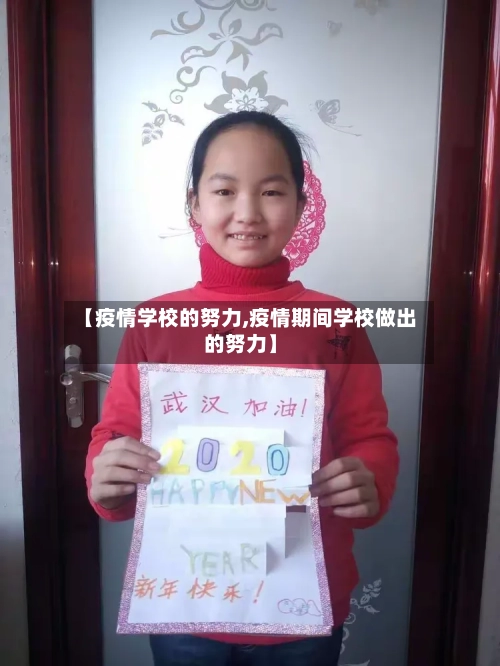 【疫情学校的努力,疫情期间学校做出
的努力】
武汉加油!
2020
HAPPY NEW
YEAR
新年快乐!